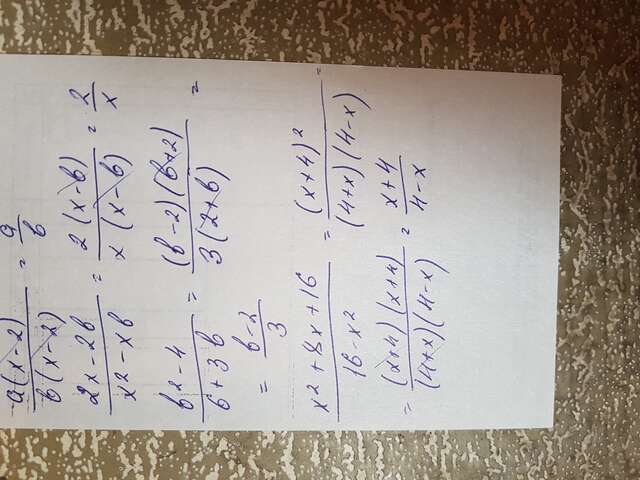 a(x-2)/b(x-2) = a/b
2x-2b/x²-xb = 2(x-b)/x(x-b) = 2/x
b²-4/6+3b = (b-2)(b+2)/3(2+b) =
= b-2/3
x²+8x+16/16-x² = (x+4)²/(4+x)(4-x) =
= (x+4)(x+4)/(4+x)(4-x) = x+4/4-x